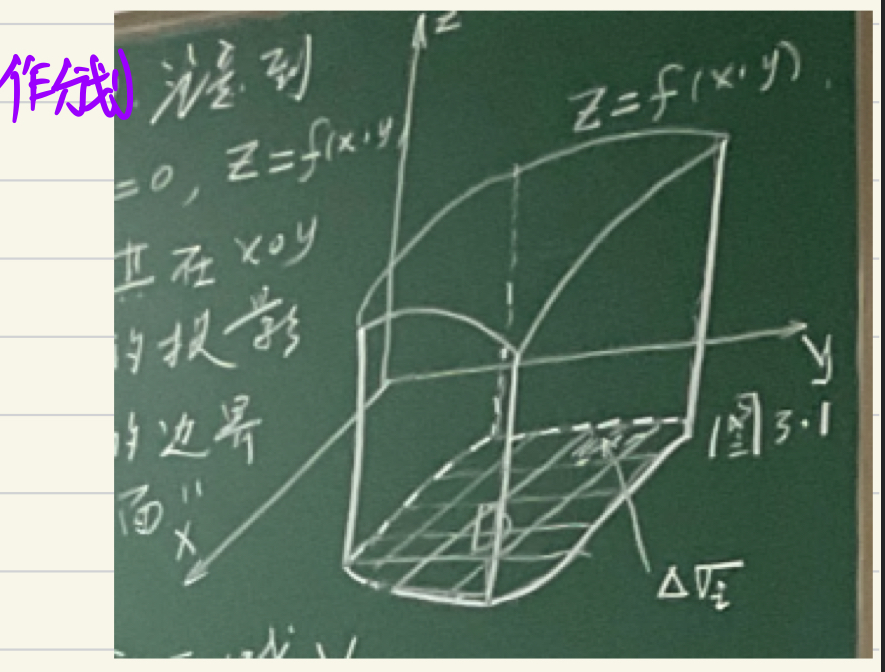 作分划
注意到
=0, Z=f(x,y)
其在xoy
的投影
的边界
面"
x
z
Z=f(x,y).
y
图3.1
Δσi